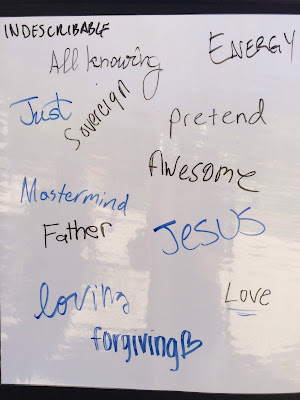 INDESCRIBABLE
ENERGY
All knowing
Just
Sovereign
pretend
AWESOME
Mastermind
Father
JESUS
loving
Love
forgiving